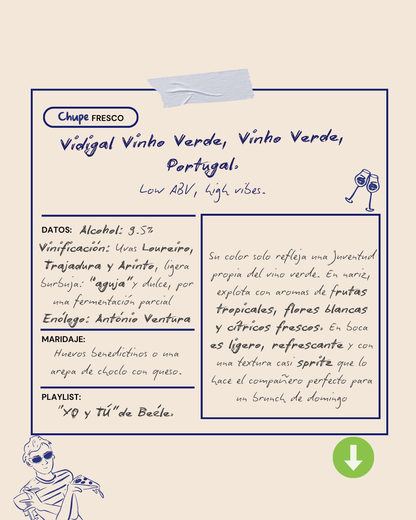 Chupe FRESCO
Vidigal Vinho Verde, Vinho Verde,
Portugal.
Low ABV, high vibes.
DATOS: Alcohol: 9.5%
Vinificación: Uvas Loureiro,
Trajadura y Arinto, ligera
burbuja: "aguja" y dulce, por
una fermentación parcial
Enólogo: António Ventura
MARIDAJE:
Huevos benedictinos o una
arepa de choclo con queso.
PLAYLIST:
"YO y TÚ" de Beéle.
Su color solo refleja una juventud
propia del vino verde. En nariz,
explota con aromas de frutas
tropicales, flores blancas
y cítricos frescos. En boca
es ligero, refrescante y con
una textura casi spritz que lo
hace el compañero perfecto para
un brunch de domingo